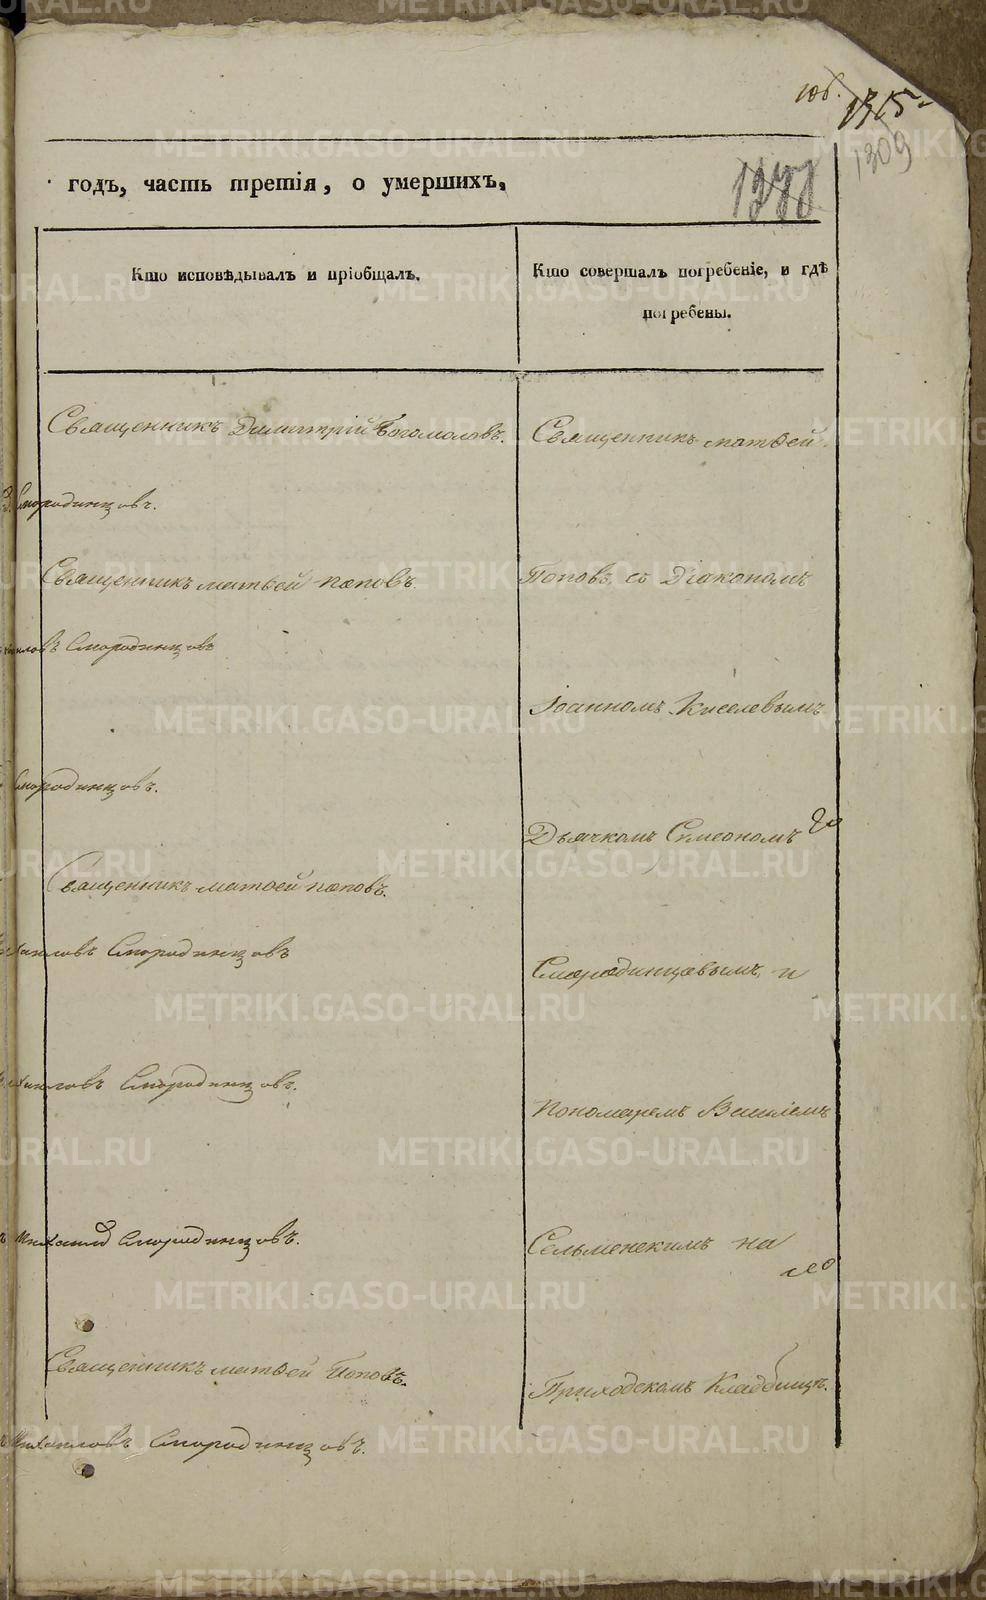 1315
1309
годъ, часть третія, о умершихъ,
Кто исповѣдывалъ и пріобщалъ.
Кто совершалъ погребеніе, и гдѣ
погребены.
Священникъ Димитрій Богомоловъ.
Священникъ матвей
Смородинцовъ.
Священникъ матвей поповъ.
Поповъ, съ Діакономъ
Смородинцовъ
Іоанномъ Киселевымъ
Смородинцовъ.
Дьячкомъ Симеономъ
Священникъ матвей поповъ.
Смородинцовъ
Смородинцовымъ, и
Смородинцовъ.
Пономаремъ Василіемъ
Смородинцовъ.
Сельменскимъ на
Священникъ матвей Поповъ.
Приходскомъ Кладбищѣ.
Михаиловъ Смородинцовъ.
METRIKI.GASO-URAL.RU